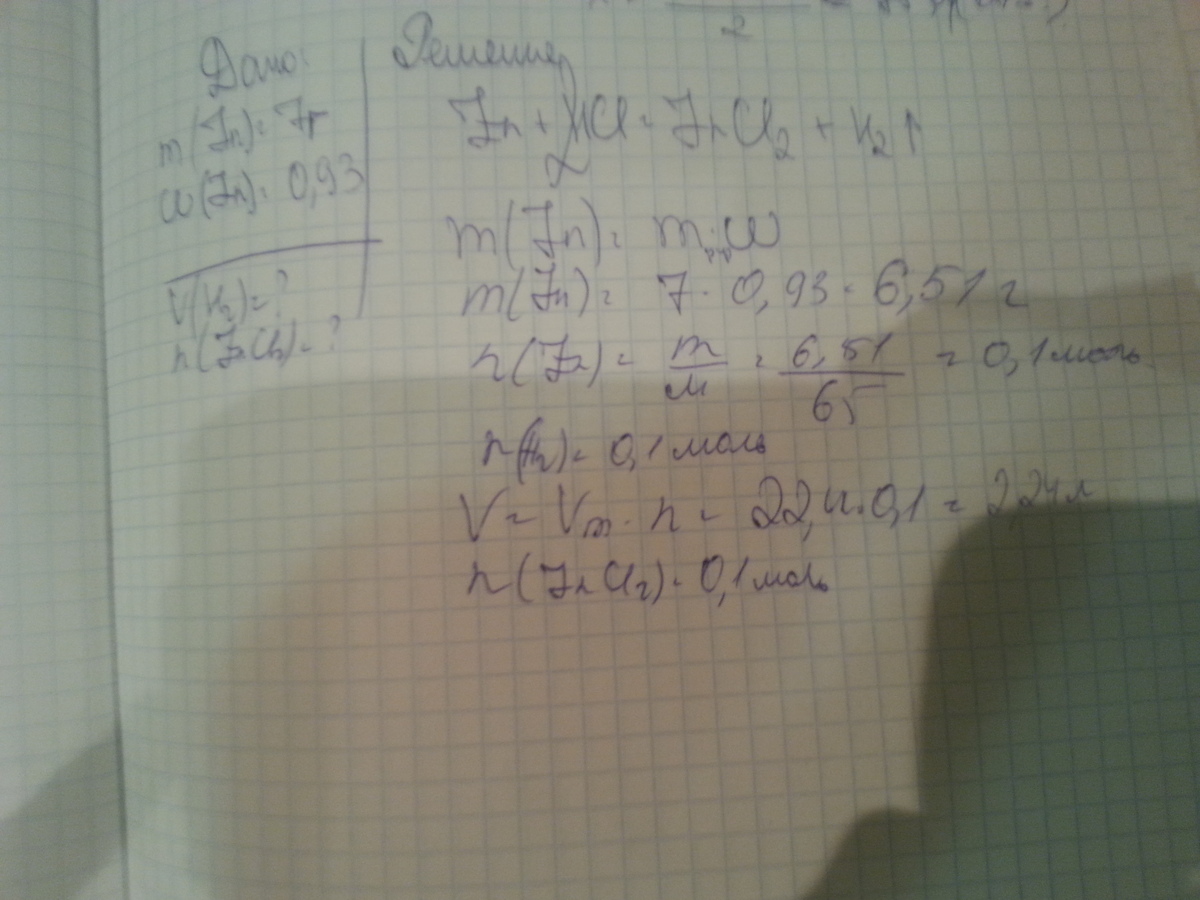 2
Дано:
m(Zn) = 7г
ω(Zn) = 0,93
V(H2) = ?
n(ZnCl2) = ?
Решение
Zn + 2HCl = ZnCl2 + H2↑
m(Zn) = m · ω
m(Zn) = 7 · 0,93 = 6,51 г
n(Zn) = m/M = 6,51/65 = 0,1 моль
n(H2) = 0,1 моль
V = Vm · n = 22,4 · 0,1 = 2,24 л
n(ZnCl2) = 0,1 моль